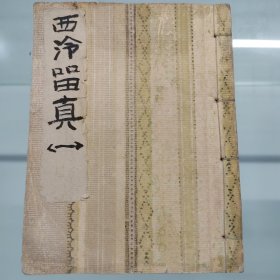 西泠畱真
(一)